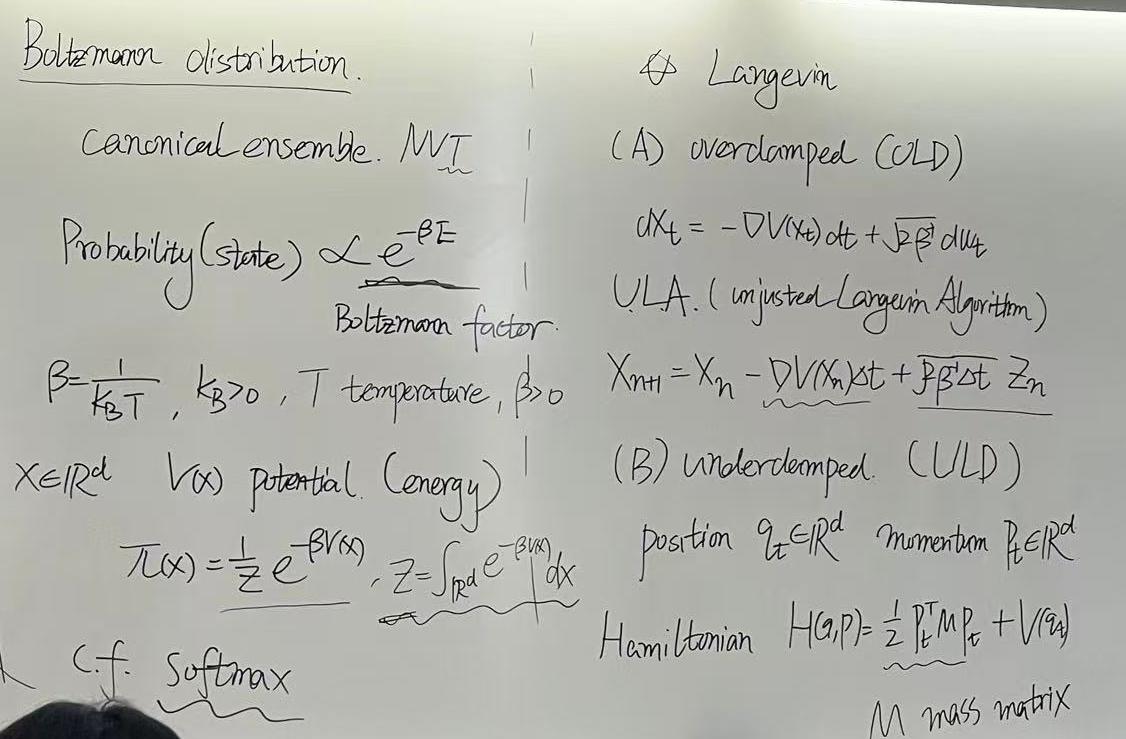 Boltzmann distribution.
canonical ensemble. NVT
Probability(state) ∝ e^{-βE}
Boltzmann factor.
β = 1/(k_B T), k_B>0, T temperature, β>0
X∈ℝ^d V(x) potential. (energy)
π(x) = 1/Z e^{-βV(x)}, Z=∫_{ℝ^d} e^{-βV(x)} dx
c.f. softmax
Langevin
(A) overdamped (OLD)
dX_t = -∇V(X_t)dt + √(2β^{-1}) dW_t
ULA. (unjusted Langevin Algorithm)
X_{n+1} = X_n - ∇V(X_n)Δt + √(2β^{-1}Δt) Z_n
(B) underdamped. (ULD)
position q_t∈ℝ^d momentum p_t∈ℝ^d
Hamiltonian H(q,p)= 1/2 p_t^T M p_t + V(q_t)
M mass matrix